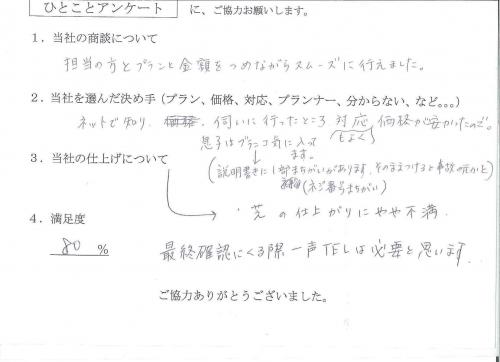 ひとことアンケート に、ご協力お願いします。
1．当社の商談について
担当の方とプランと金額をつめながらスムーズに行えました。
2．当社を選んだ決め手（プラン、価格、対応、プランナー、分からない、など。。。）
ネットで知り、価格 伺いに行ったところ 対応もよく 価格が安かったので。
息子はブランコ気に入ってます。
3．当社の仕上げについて
（説明書きに1部まちがいがあります。そのままつけると事故の元かと
（ネジ番号まちがい）
・芝の仕上がりにやや不満
4．満足度
80 ％
最終確認にくる際一声TELは必要と思います。
ご協力ありがとうございました。